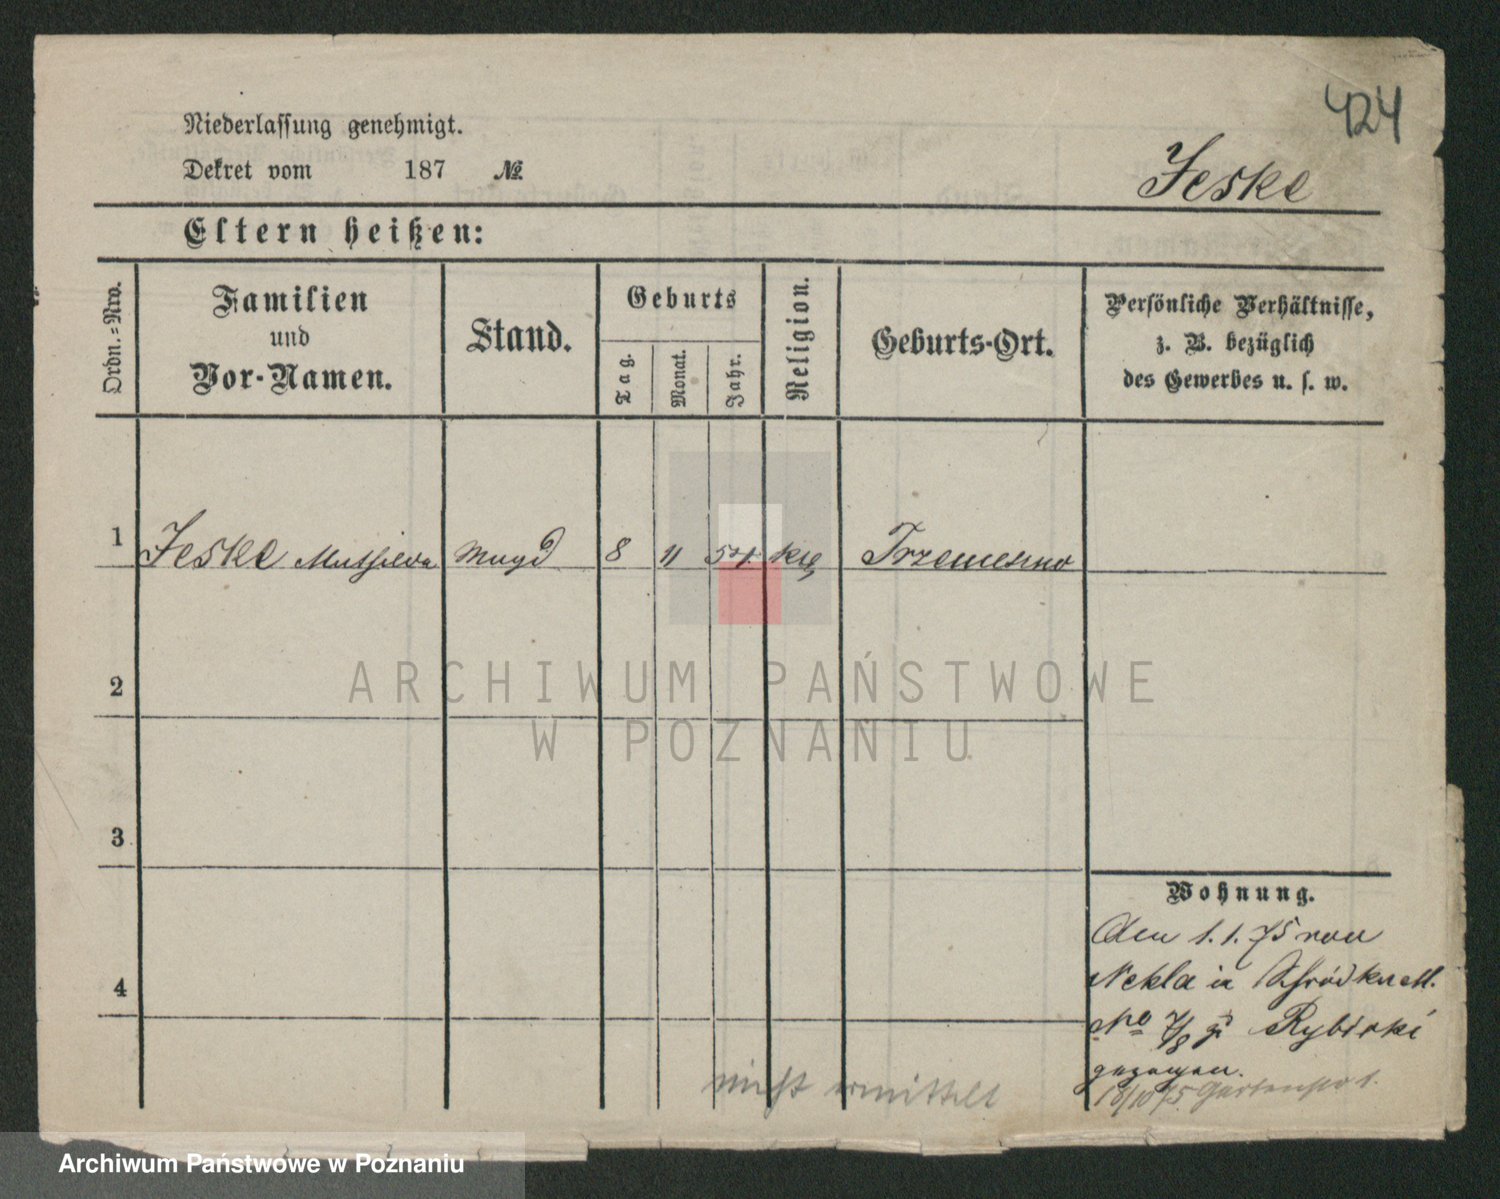 424
Niederlassung genehmigt.
Dekret vom 187 №
Jeske
Eltern heißen:
Ordn.=Nro.
Familien
und
Vor-Namen.
Stand.
Geburts
Tag.
Monat.
Jahr.
Religion.
Geburts-Ort.
Persönliche Verhältnisse,
z. B. bezüglich
des Gewerbes u. s. w.
1 Jeske Mathilda Magd 8 11 54 kth Trzemeszno
2
3
4
Wohnung.
Den 1.1.75 von
Nekla in Schrodkaetl.
No 7/8 zu Rybicki
gezogen.
18/10 75 Gartenstr 1.
nicht ermittelt
ARCHIWUM PAŃSTWOWE
W POZNANIU
Archiwum Państwowe w Poznaniu